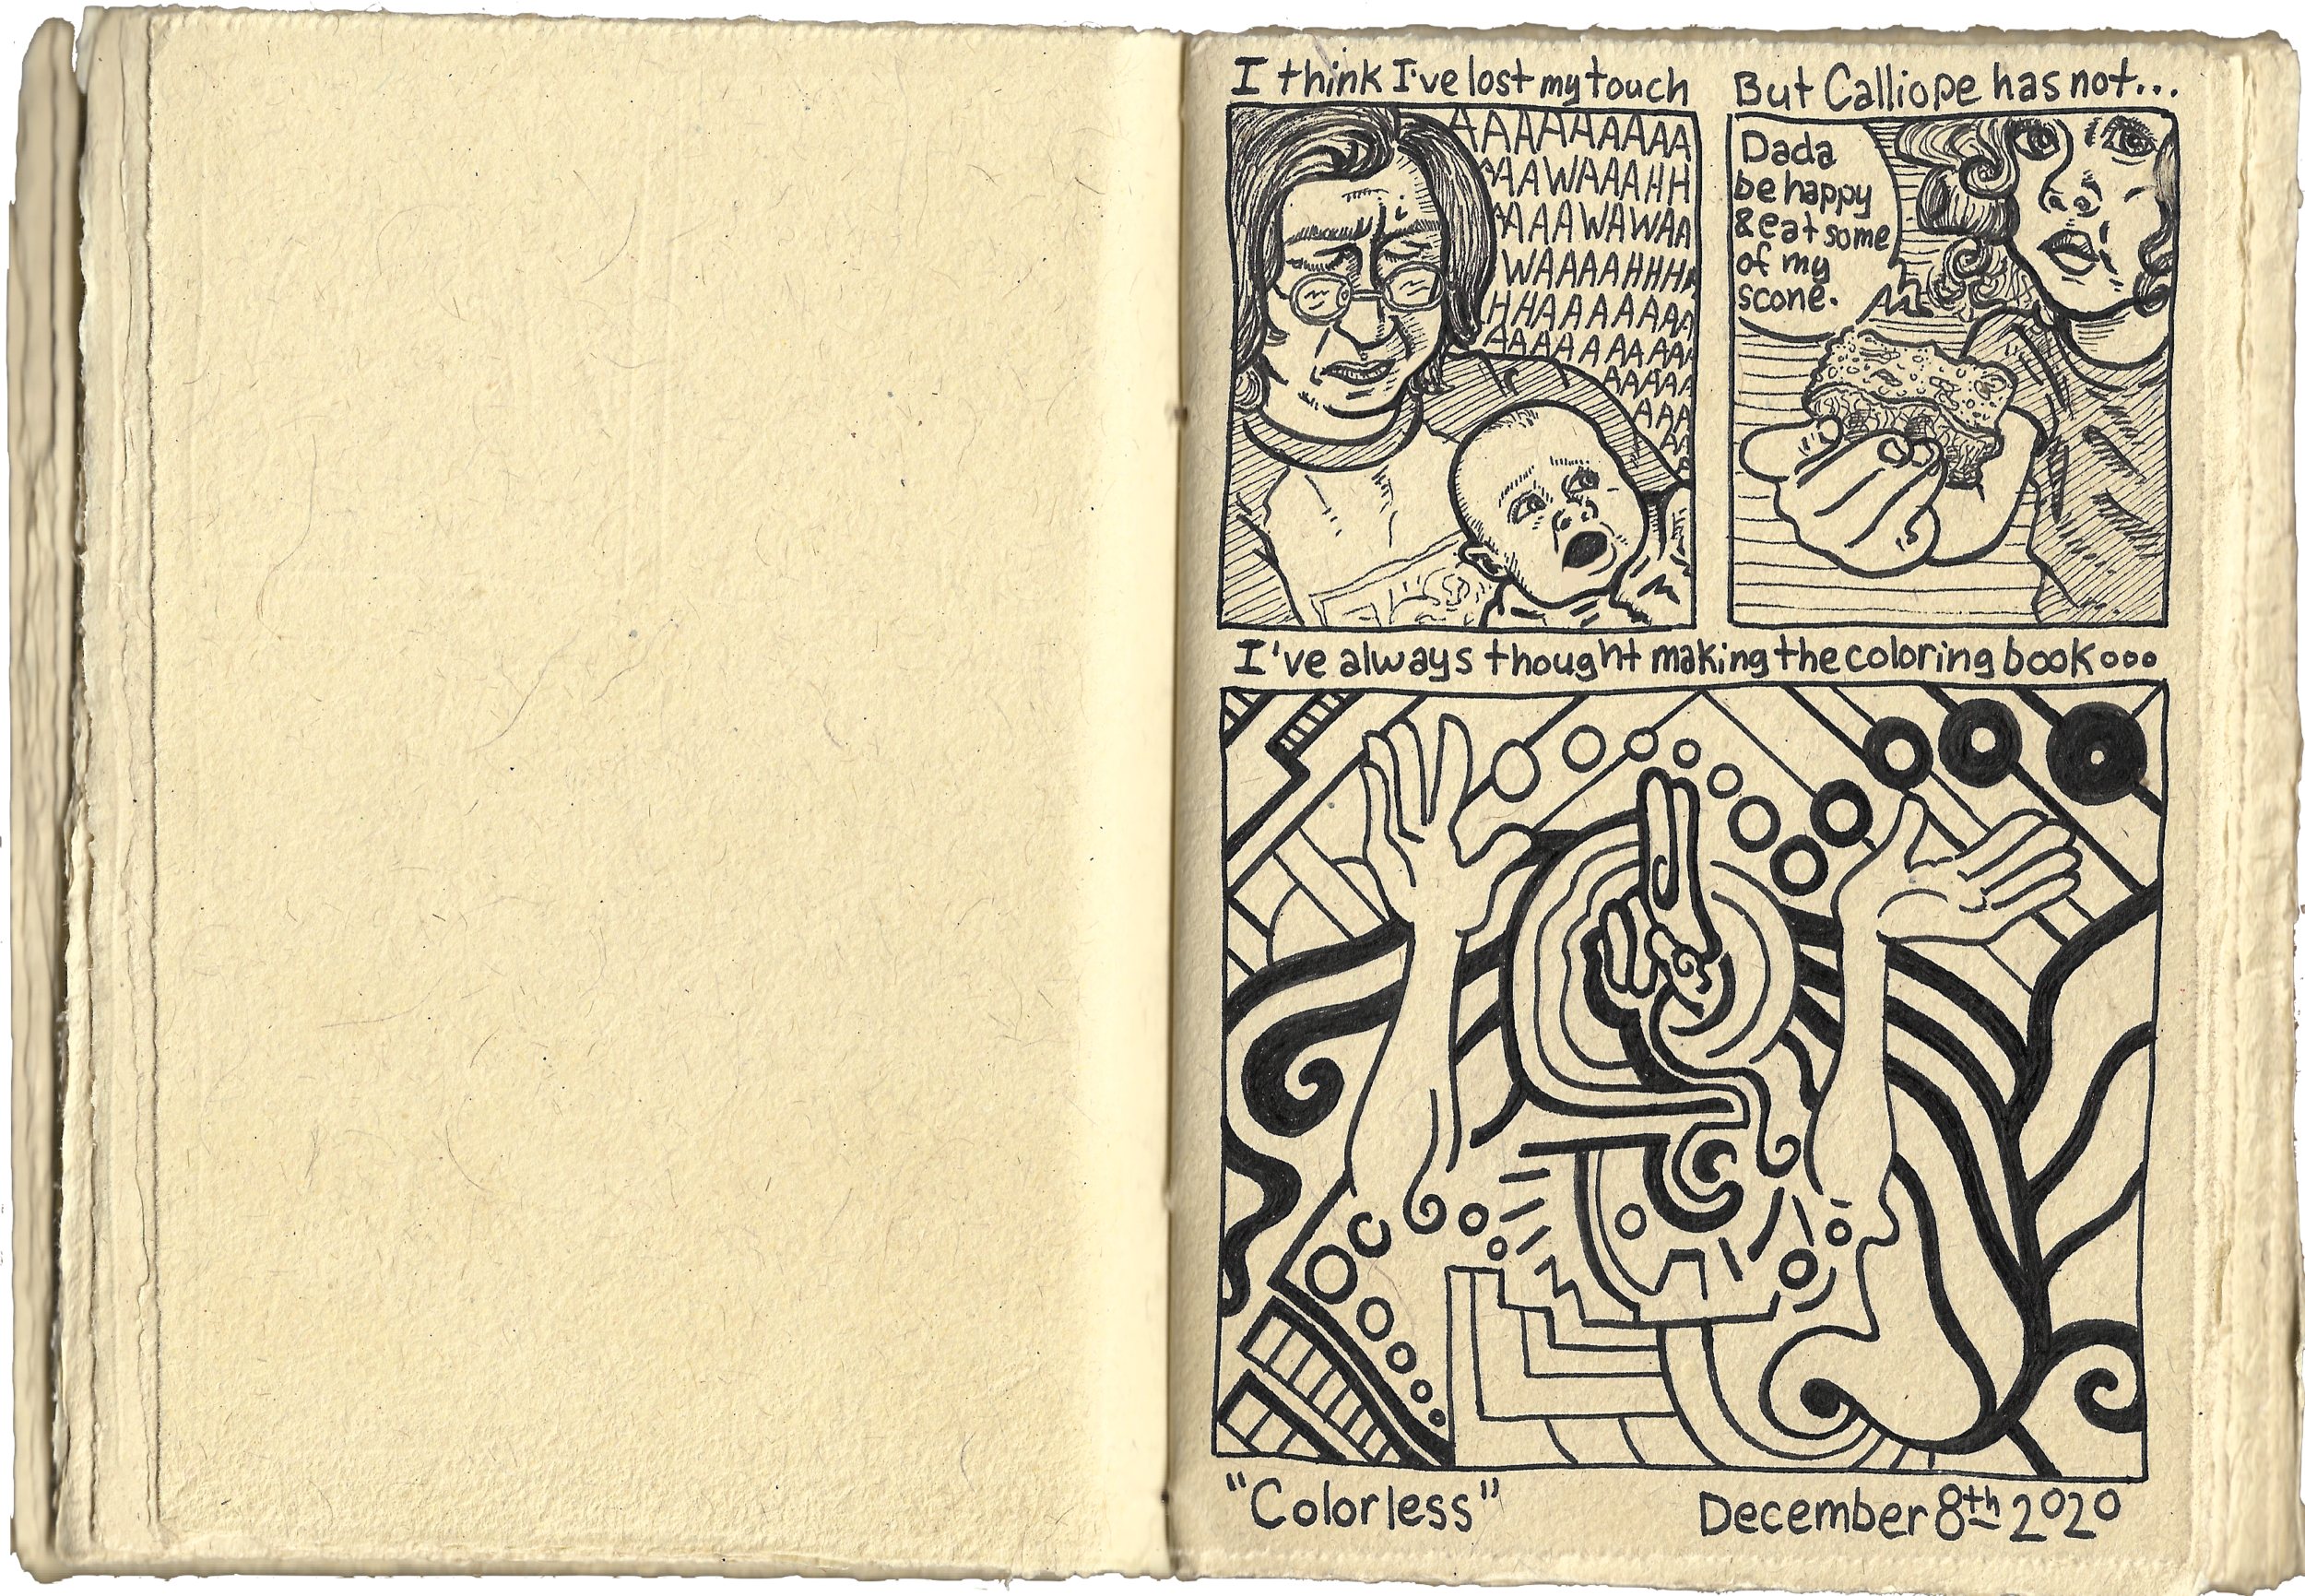 I think I've lost my touch
AAAAAAAAA
AAAWAAAHH
AAAAWAWAA
WAAAAHHHA
HHAAAAAAA
AAAAAAAAAA
AAAAA
AAA
AA
A
But Calliope has not...
Dada
be happy
& eat some
of my
scone.
I've always thought making the coloring book...
"Colorless"
December 8th 2020